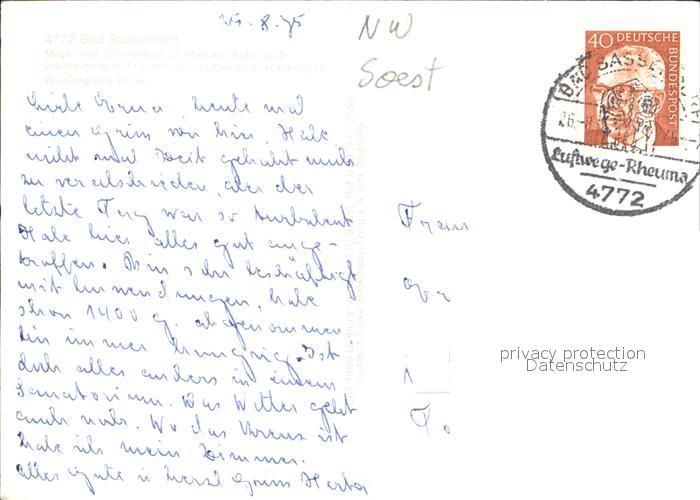 25.8.75
NW
Soest
4772 Bad Sassendorf
Moor- und Solebeilbad für Rheuma, Aufbrauch-
erscheinungen, Frauenleiden, Luftwege-Erkrankungen
Wiesengrund-Klinik
40 DEUTSCHE
BUNDESPOST
BAD SASSENDORF
26.-8.
Luftwege-Rheuma
4772
Liebe Erna heute mal
einen Gruss von hier. Habe
nicht mal Zeit gehabt mich
zu verabschieden, aber der
letzte Tag war so turbulent
Habe hier alles gut ange-
troffen. Bin sehr beschäftigt
mit Anwendungen, habe
schon 1400 g. abgenommen
bin immer hungrig. Ist
doch alles anders in einem
Sanatorium. Das Wetter geht
auch noch. Wo das Kreuz ist
habe ich mein Zimmer.
Alles Gute u herzl Gruss
Frau
privacy protection
Datenschutz